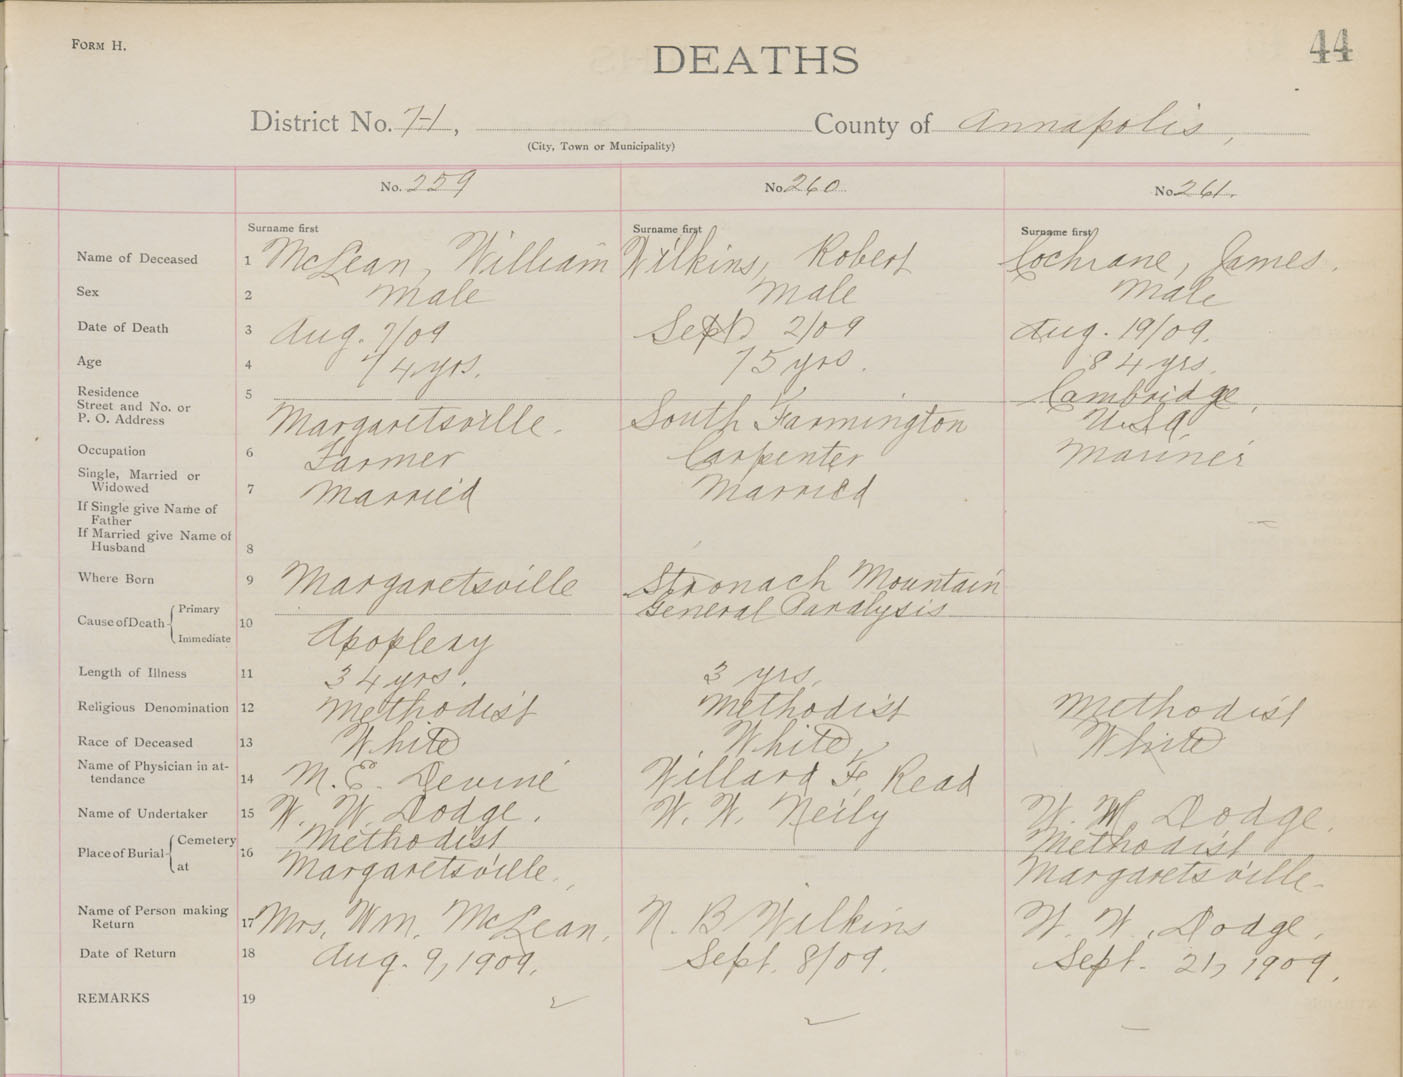 FORM H.
44
DEATHS
District No. 7-1, County of Annapolis,
(City, Town or Municipality)
No. 259 No. 260 No. 261.
Surname first Surname first Surname first
Name of Deceased 1 McLean, William Wilkins, Robert Cochrane, James.
Sex 2 Male Male Male
Date of Death 3 Aug. 7/09 Sept 2/09 Aug. 19/09.
Age 4 74 yrs. 75 yrs. 84 yrs.
Residence 5 Cambridge,
Street and No. or
P. O. Address Margaretsville. South Farmington U.S.A
Occupation 6 Farmer Carpenter Mariner
Single, Married or
Widowed 7 Married Married
If Single give Name of
Father
If Married give Name of
Husband 8
Where Born 9 Margaretsville Stronach Mountain
Cause of Death Primary General Paralysis
10
Immediate Apoplexy
Length of Illness 11 34 yrs. 3 yrs.
Religious Denomination 12 Methodist Methodist Methodist
Race of Deceased 13 White White White
Name of Physician in at-
tendance 14 M. E. Devine Willard F. Read
Name of Undertaker 15 W. W. Dodge. W. W. Neily W. W. Dodge.
Place of Burial Cemetery Methodist Methodist
16
at Margaretsville. Margaretsville.
Name of Person making
Return 17 Mrs. Wm. McLean. N. B Wilkins W. W. Dodge.
Date of Return 18 Aug. 9, 1909. Sept. 8/09. Sept. 21, 1909.
REMARKS 19